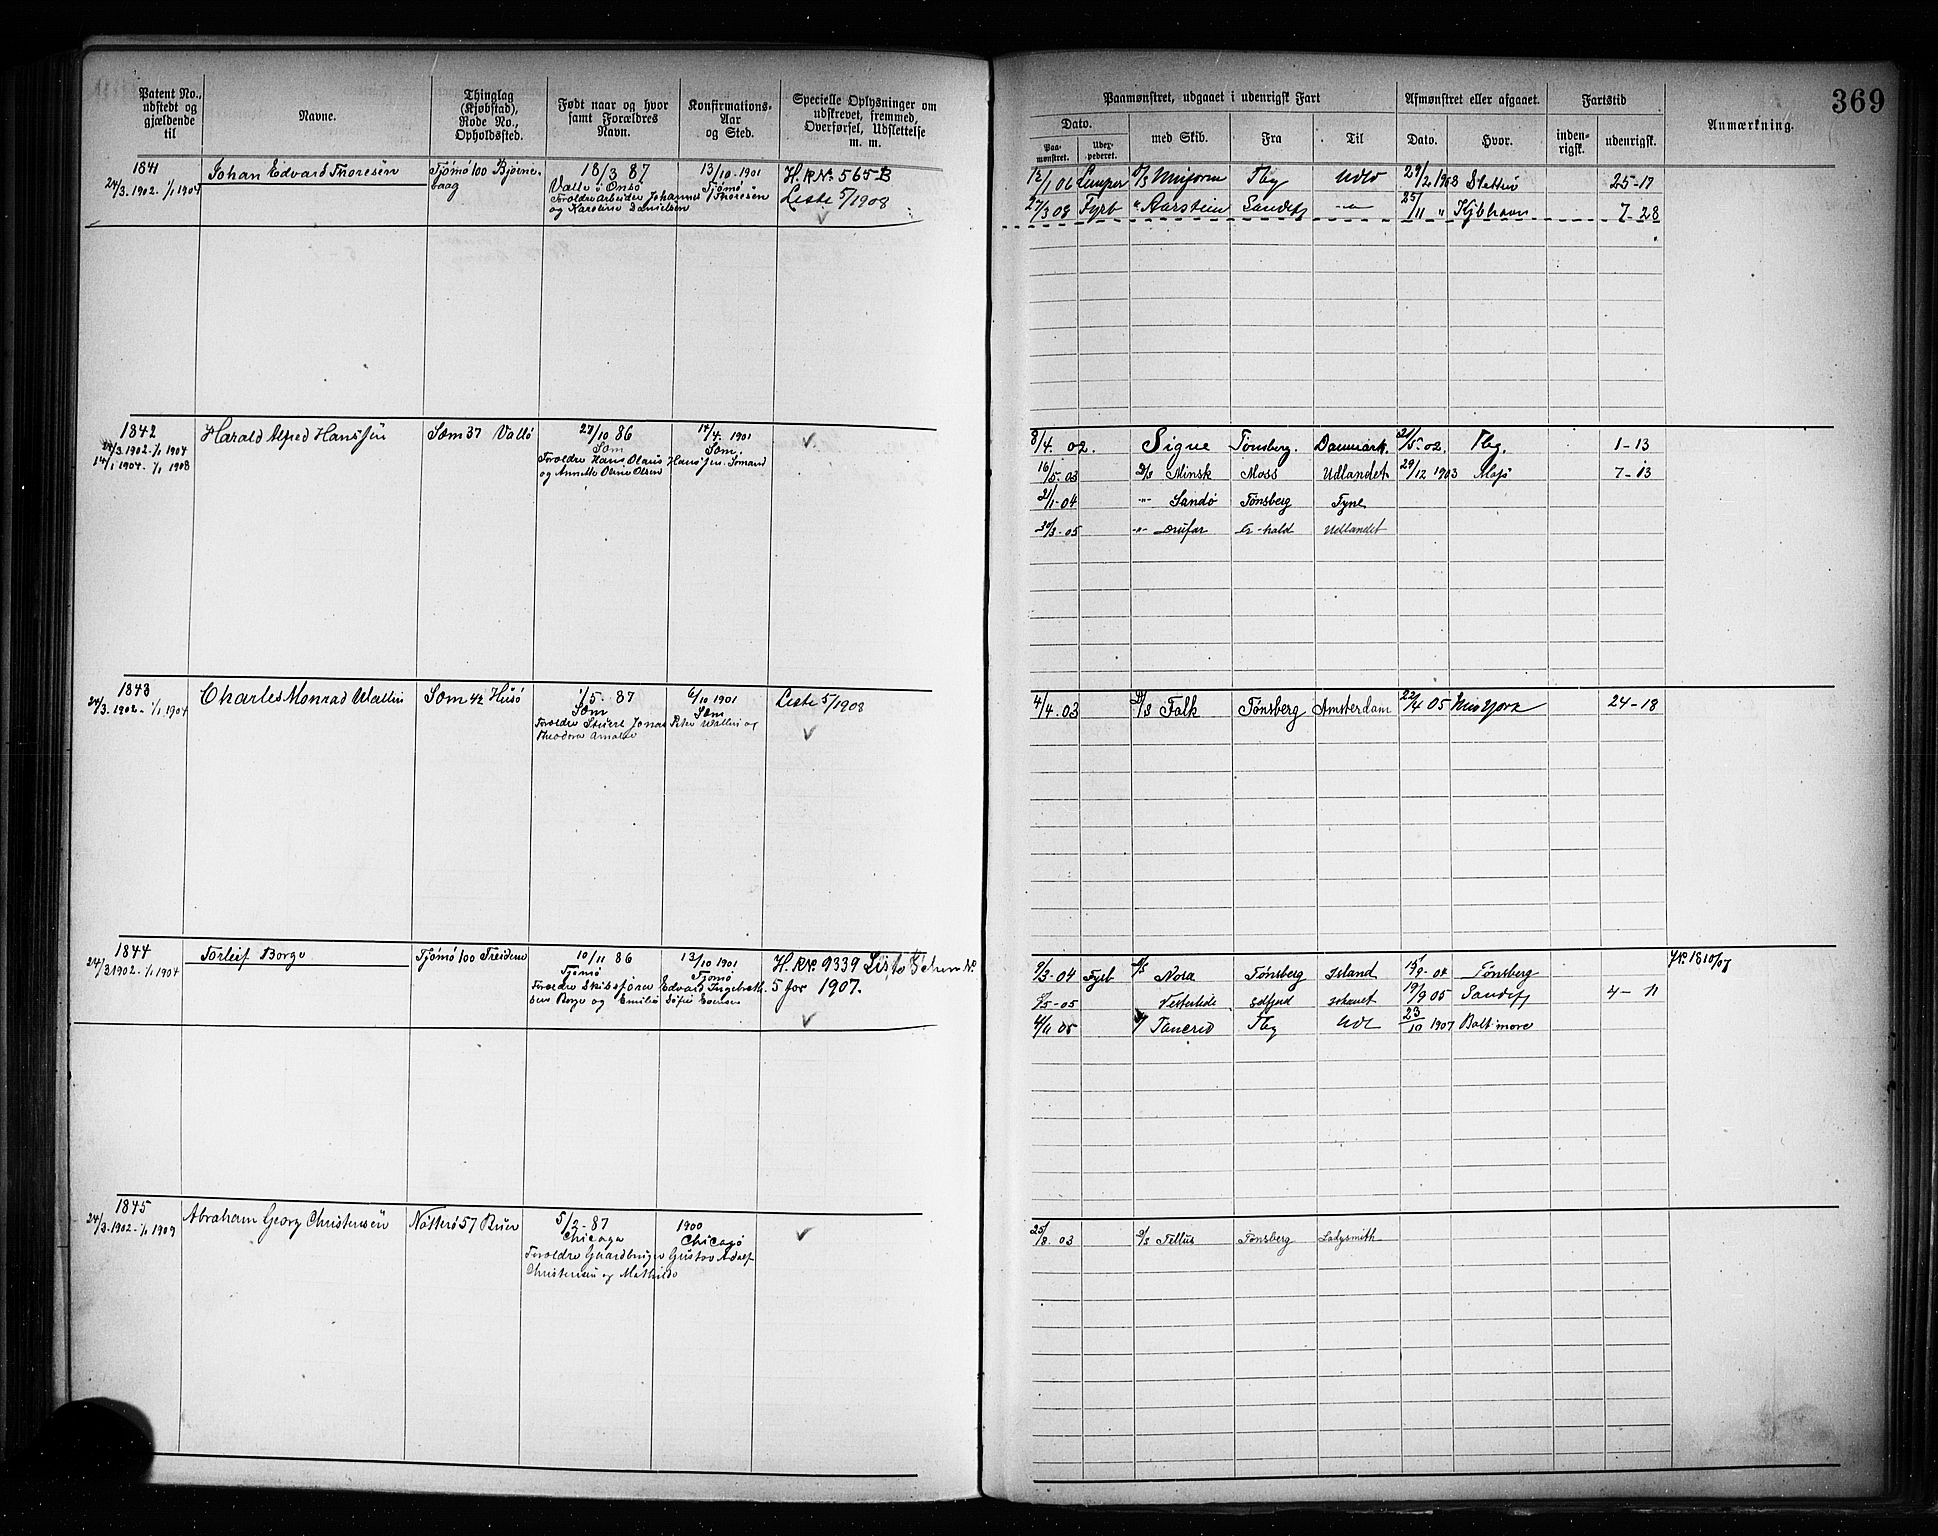 Patent No.,
udstedt og
gjældende
til
Navne.
Thinglag
(Kjøbstad),
Rode No.,
Opholdssted.
Født naar og hvor
samt Forældres
Navn.
Konfirmations-
Aar
og Sted.
Specielle Oplysninger om
udskrevet, fremmed,
Overførsel, Udslettelse
m. m.
1841
24/3. 1902. 1/1 1904
Johan Edvard Thoresen
Tjømø 100 Bjørne-
baag
18/3 87
Valle i Onsø
Forældre Arbeider Johannes Thoresen
og Karoline Danielsen
13/10-1901
Tjømø
H.R.No. 565 B
Liste 5/1908
1842
24/3. 1902. 1/1 1904
14/1 1904. 1/1 1908
Harald Alfred Hanssen
Sæm 37 Vallø
27/10 86
Sæm
Forældre Hans Olaus Hanssen. Sømand
og Annette Oline Olsen
14/4. 1901
Sæm.
1843
24/3. 1902. 1/1 1904
Charles Monrad Wallin
Sæm 42 Husø
1/5. 87
Sæm
Forældre Stuert Jonas Peter Wallin og
Theodora Amalie
6/10 1901
Sæm
Liste 5/1908
1844
24/3 1902. 1/1 1904
Torleif Borge
Tjømø 100 Treidene
10/11 86
Tjømø
Forældre Skibsfører Edvard Ingebreth-
sen Borge og Emilie Sofie
13/10 1901
Tjømø
H.R.No. 9339
5 for 1907.
1845
24/3. 1902. 1/1 1909
Abraham Georg Christensen
Nøtterø 57 Buer
5/2-87
Chicago
Forældre Gaardbruger Gustav Adolf
Christensen og Mathilde
1900
Chicago
369
Paamønstret, udgaaet i udenrigsk Fart
Afmønstret eller afgaaet.
Fartstid
Anmærkning.
Dato.
Paa-
mønstret.
med Skib.
Fra
Til
Dato.
Hvor.
inden-
rigsk.
udenrigsk.
12/1 06 Lemper Tbg Udld 29/2 1908 25-17
27/3 08 Fyrb " Aarstein Sandefj 25/11 " Kjbhavn 7-28
8/4. 02. Signe Tønsberg. Danmark. 21/5 02. Tbg. 1-13
16/5. 03 D/S Minsk Moss Udlandet 29/12 1903 Moss 7-13
21/1-04 -"- Sandø Tønsberg Tyne
30/3-05 -"- Fr-hald Udlandet
4/4. 03 D/S Falk Tønsberg Amsterdam 22/4 05 New York 24-18
9/3-04 Fyrb D/S Nora Tønsberg Island 15/9-04 Tønsberg
5-05 Vesterlide 19/9 05 Sandefj 4-11
4/11 05 Tancred Tbg Udl 23/10 1907 Baltimore
25/8. 03 S/S Tellus Tønsberg Ladysmith